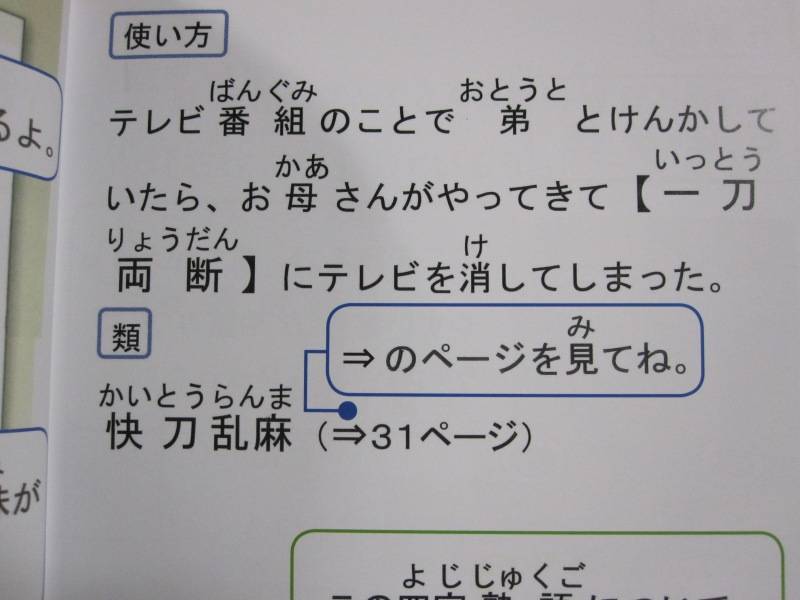 使い方
ばんぐみ おとうと
テレビ番組のことで弟とけんかして
かあ いっとう
いたら、お母さんがやってきて【一刀
りょうだん け
両断】にテレビを消してしまった。
類
み
⇒のページを見てね。
かいとうらんま
快刀乱麻（⇒31ページ）
よじじゅくご
るよ。
が